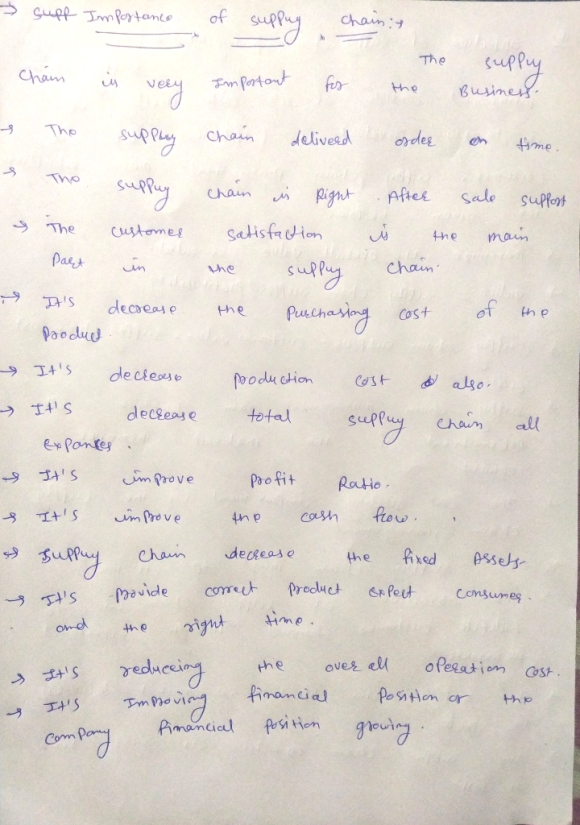 → Supp Importance of supply chain:→
The supply
chain is very Important for the Business.
→ The supply chain deliverd order on time.
→ The supply chain is Right After sale support
→ The customer satisfaction is the main
Part in the supply chain.
→ It's decrease the Purchasing cost of the
Product.
→ It's decrease production cost also.
→ It's decrease total supply chain all
expanses.
→ It's improve profit Ratio.
→ It's improve the cash flow.
→ supply chain decrease the fixed Assets
→ It's provide correct product expect consumer.
and the right time.
→ It's reduceing the over all operation cost.
→ It's Improving financial Position or the
company financial position growing.